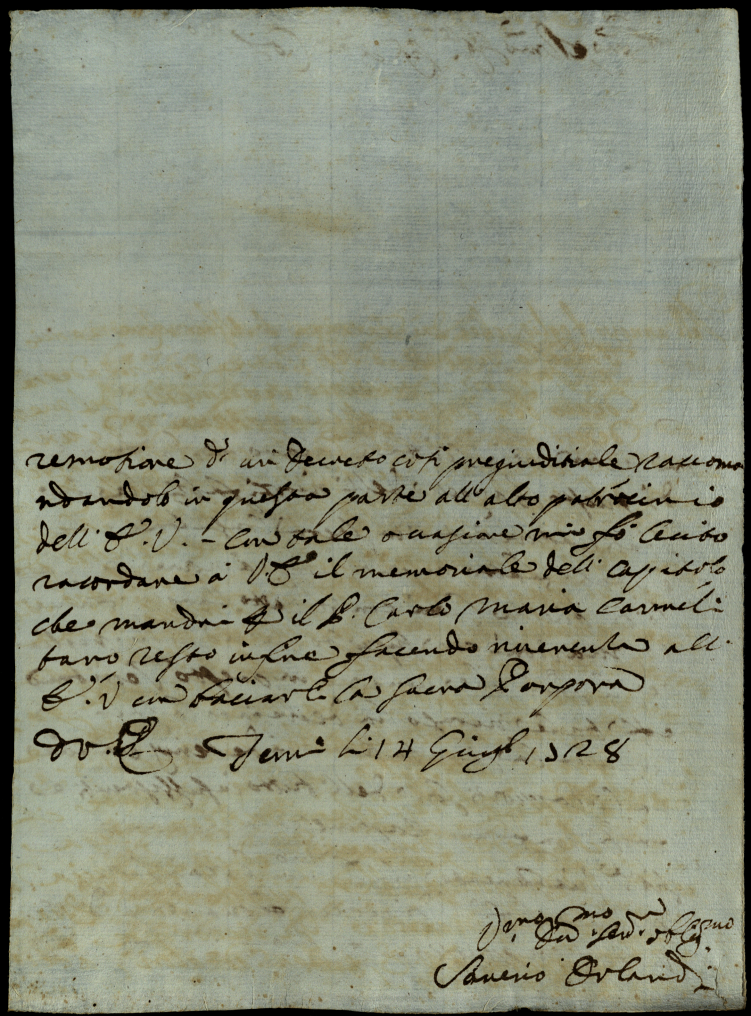 remotione d'un decreto così pregiuditiale raccoma
ndandolo in questa parte all'alto patrocinio
dell'E. V. - con tale occasione mi fò lecito
racordare à V E il memoriale dell Capitolo
che mandai il P. Carlo Maria Carmeli
tano resto infine facendo riverenza all'
E. V con baciarli la sacra Porpora
D V. E li 14 Giug 1728
Saverio Orlandi